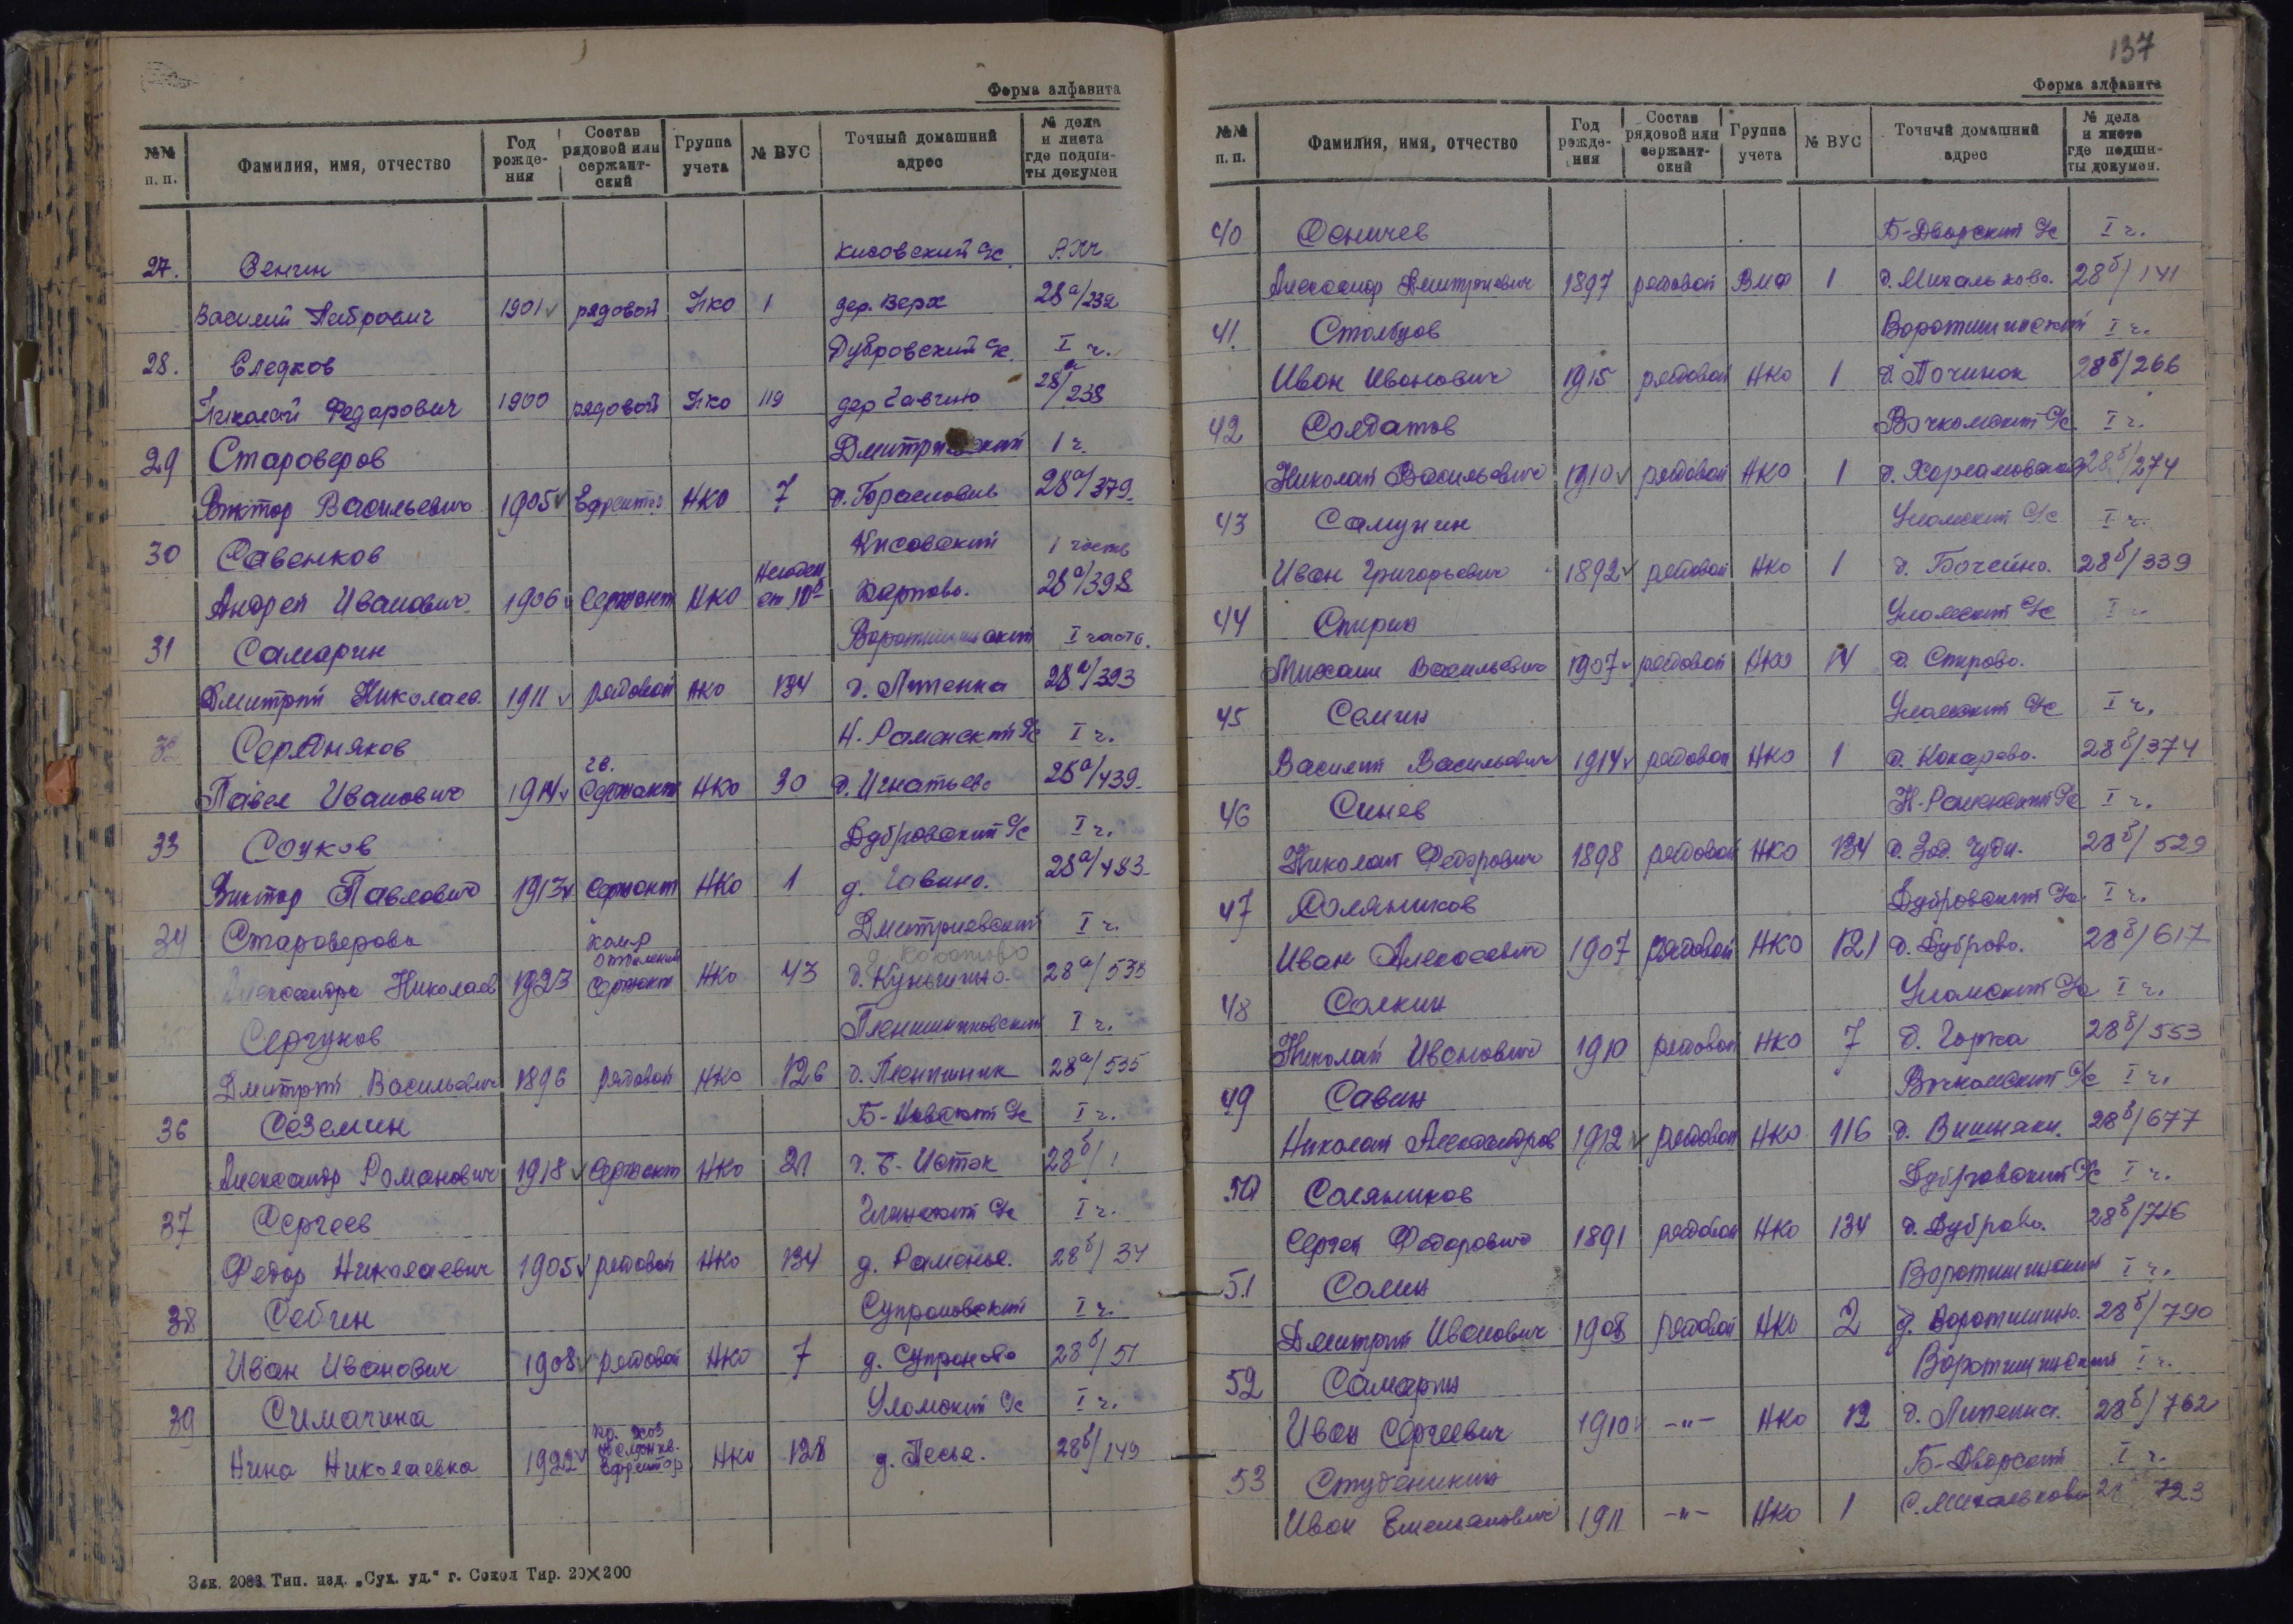 Форма алфавита
№№ п. п. | Фамилия, имя, отчество | Год рожде-ния | Состав рядовой или сержант-ский | Группа учета | № ВУС | Точный домашний адрес | № дела и листа где подши-ты докумен
27. Сенчин Кисовский с/с
Василий 1901 рядовой НКО 1 дер. Верх 28а/232
28. Следков Дубровский с/с. I ч.
Николай Федорович 1900 рядовой НКО 119 дер Гавино 28а/238
29 Староверов 1 ч.
Виктор Васильевич 1905 Ефрейтор НКО 7 28а/379.
30 Савенков Кисовский 1 часть
Андрей Иванович. 1906 Сержант НКО Карпово. 28а/398
31 Самарин Воротишинский I часть.
Дмитрий Николаев. 1911 рядовой НКО 134 д. Липенка 28а/393
32 Середняков Н. Раменский с/с I ч.
Павел Иванович 1914 гв. Сержант НКО 30 д. Игнатьево 28а/439.
33 Соуков Дубровский с/с I ч.
Виктор Павлович 1913 Сержант НКО 1 д. Гавино. 28а/483
34 Староверова Дмитриевский I ч.
Александра Николаев 1923 Ком-р отделения Сержант НКО 43 28а/538
Сергунов I ч.
Дмитрий Васильевич 1896 рядовой НКО 126 28а/535
36 Сеземин I ч.
Александр Романович 1918 Сержант НКО 21 д. Б-Исток 28б/1
37 Сергеев I ч.
Федор Николаевич 1905 рядовой НКО 134 д. Раменье. 28б/34
38 Себчин Супроновский I ч.
Иван Иванович 1908 рядовой НКО 7 д. Супроново 28б/51
39 Симачина Уломский с/с I ч.
Нина Николаевна 1922 Ефрейтор НКО 128 д. Песье. 28б/149
Зак. 2083 Тип. изд. „Сух. уд.“ г. Сокол Тир. 20×200
137
Форма алфавита
№№ п. п. | Фамилия, имя, отчество | Год рожде-ния | Состав рядовой или сержант-ский | Группа учета | № ВУС | Точный домашний адрес | № дела и листа где подши-ты докумен.
40 Осничев Б-Дворский с/с I ч.
Александр Дмитриевич 1897 рядовой ВМФ 1 д. Михальково. 28б/141
41. Столбцов Воротишинский I ч.
Иван Иванович 1915 рядовой НКО 1 д. Починок 28б/266
42 Солдатов Вочкомский с/с I ч.
Николай Васильевич 1910 рядовой НКО 1 д. Харламовская 28б/274
43 Самунин Уломский с/с I ч.
Иван Григорьевич 1892 рядовой НКО 1 д. Бочейно. 28б/339
44 Спирин Уломский с/с I ч.
Михаил Васильевич 1907 рядовой НКО 14 д. Спирово.
45 Семин Уломский с/с I ч.
Василий Васильевич 1914 рядовой НКО 1 д. Кокарево. 28б/374
46 Синев Н-Раменский с/с I ч.
Николай Федорович 1898 рядовой НКО 134 28б/529
47 Соляников Дубровский с/с. I ч.
Иван Алексеевич 1907 рядовой НКО 121 д. Дуброво. 28б/617
48 Сочкин Уломский с/с I ч.
Николай Иванович 1910 рядовой НКО 7 д. Горка 28б/553
49 Савин Вочкомский с/с I ч.
Николай Александров 1912 рядовой НКО 116 д. Вишняки. 28б/677
50 Соляников Дубровский с/с I ч.
Сергей Федорович 1891 рядовой НКО 134 д. Дуброво. 28б/726
51 Сомин Воротишинский I ч.
Дмитрий Иванович 1908 рядовой НКО 2 д. Воротишино. 28б/790
52 Самарин Воротишинский I ч.
Иван Сергеевич 1910 -"- НКО 12 д. Липенка. 28б/762
53 Студеникин Б-Дворский I ч.
Иван Емельянович 1911 -"- НКО 1 723